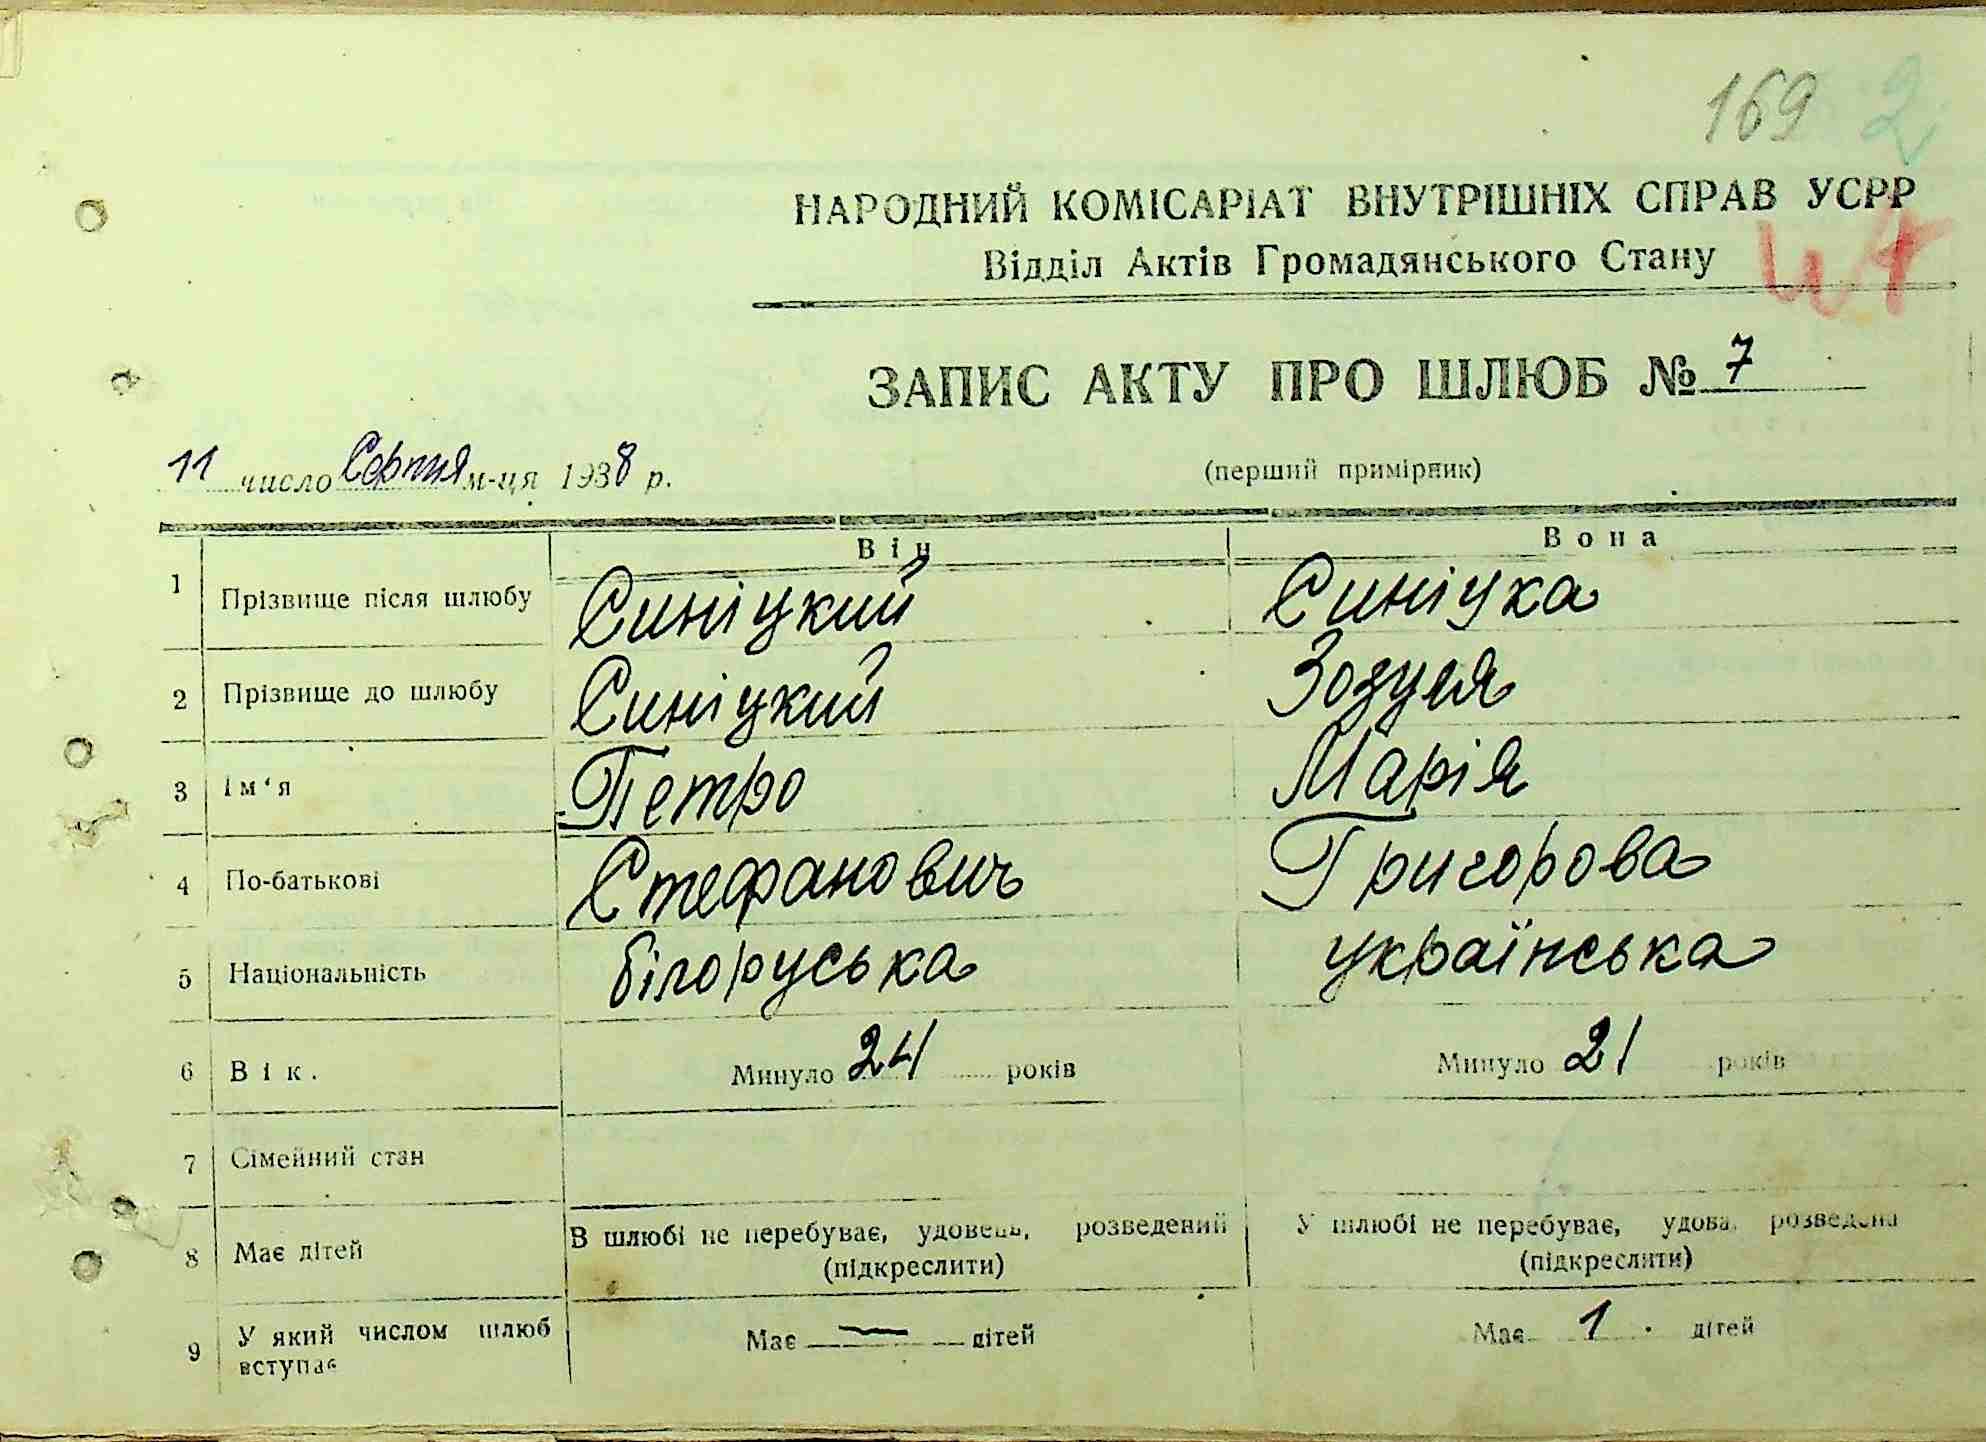 169 2
НАРОДНИЙ КОМІСАРІАТ ВНУТРІШНІХ СПРАВ УСРР
Відділ Актів Громадянського Стану
ЗАПИС АКТУ ПРО ШЛЮБ № 7
11 число Серпня м-ця 1938 р.
(перший примірник)
Він Вона
1 Прізвище після шлюбу Синіцкий Синіцка
2 Прізвище до шлюбу Синіцкий Зозуля
3 Ім'я Петро Марія
4 По-батькові Стефанович Григорова
5 Національність білоруська українська
6 Вік. Минуло 24 років Минуло 21 років
7 Сімейний стан
8 Має дітей В шлюбі не перебуває, удовець, розведений У шлюбі не перебуває, удова, розведена
(підкреслити) (підкреслити)
9 У який числом шлюб вступає Має — дітей Має 1 дітей